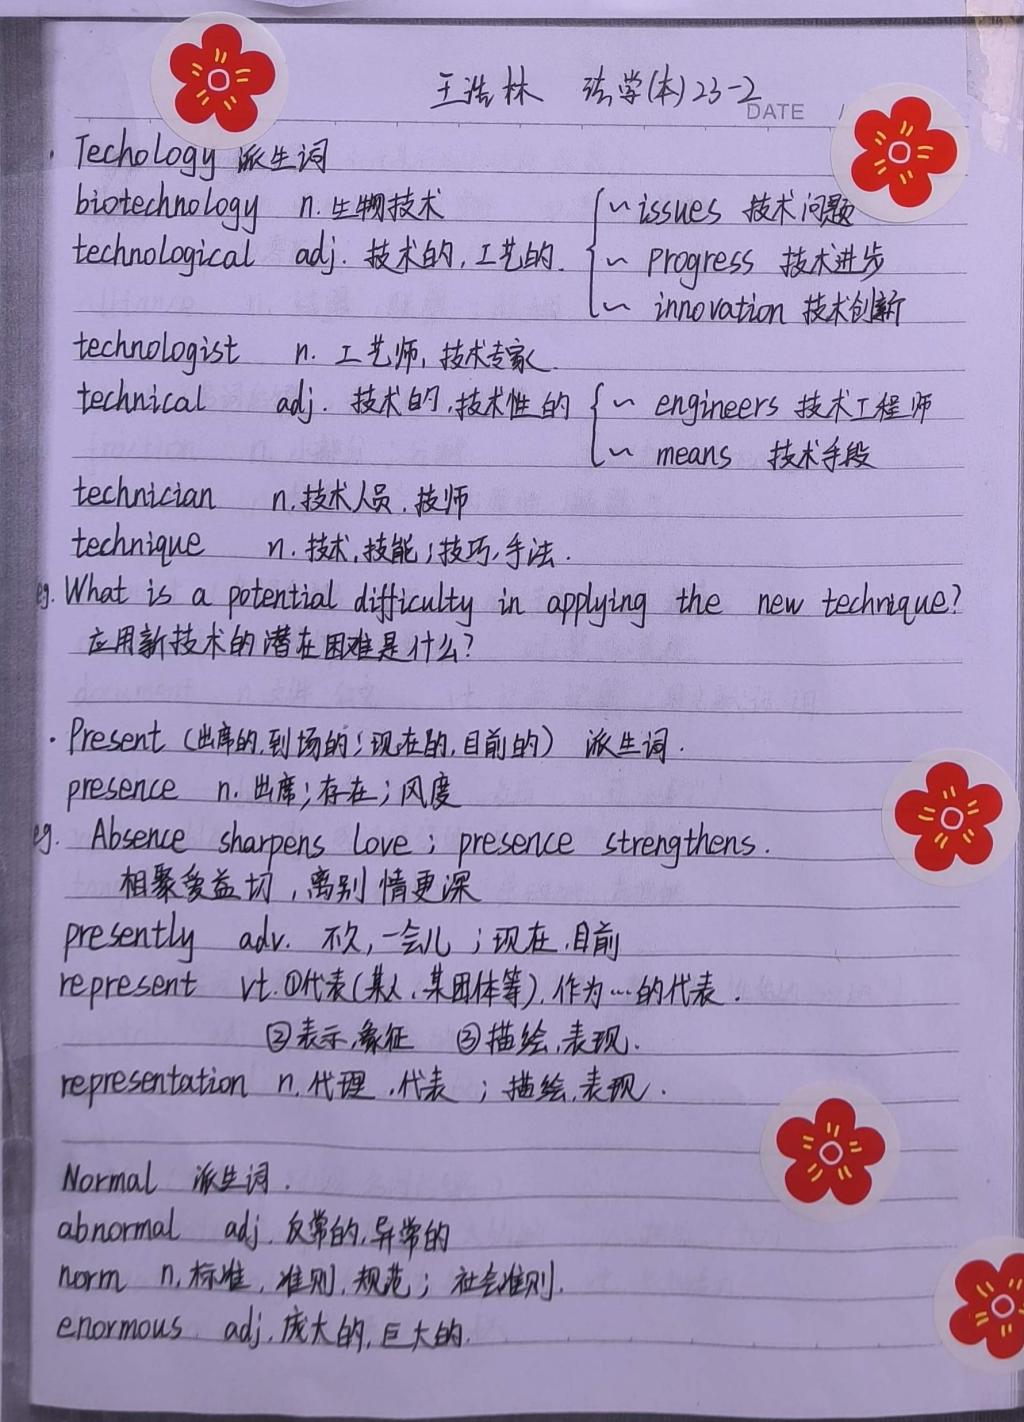 王浩林 法学(本)23-2
DATE /
Techology 派生词
biotechnology n. 生物技术 ~ issues 技术问题
technological adj. 技术的,工艺的. ~ progress 技术进步
~ innovation 技术创新
technologist n. 工艺师,技术专家.
technical adj. 技术的,技术性的 ~ engineers 技术工程师
~ means 技术手段
technician n.技术人员.技师
technique n.技术,技能;技巧,手法.
eg. What is a potential difficulty in applying the new technique?
应用新技术的潜在困难是什么?
· Present (出席的,到场的;现在的,目前的) 派生词.
presence n. 出席;存在;风度
eg. Absence sharpens love; presence strengthens.
相聚爱益切,离别情更深
presently adv. 不久,一会儿;现在,目前
represent vt.①代表(某人,某团体等),作为…的代表.
②表示,象征 ③描绘,表现.
representation n.代理,代表;描绘,表现.
Normal 派生词.
abnormal adj. 反常的,异常的
norm n.标准,准则,规范;社会准则.
enormous adj.庞大的,巨大的.